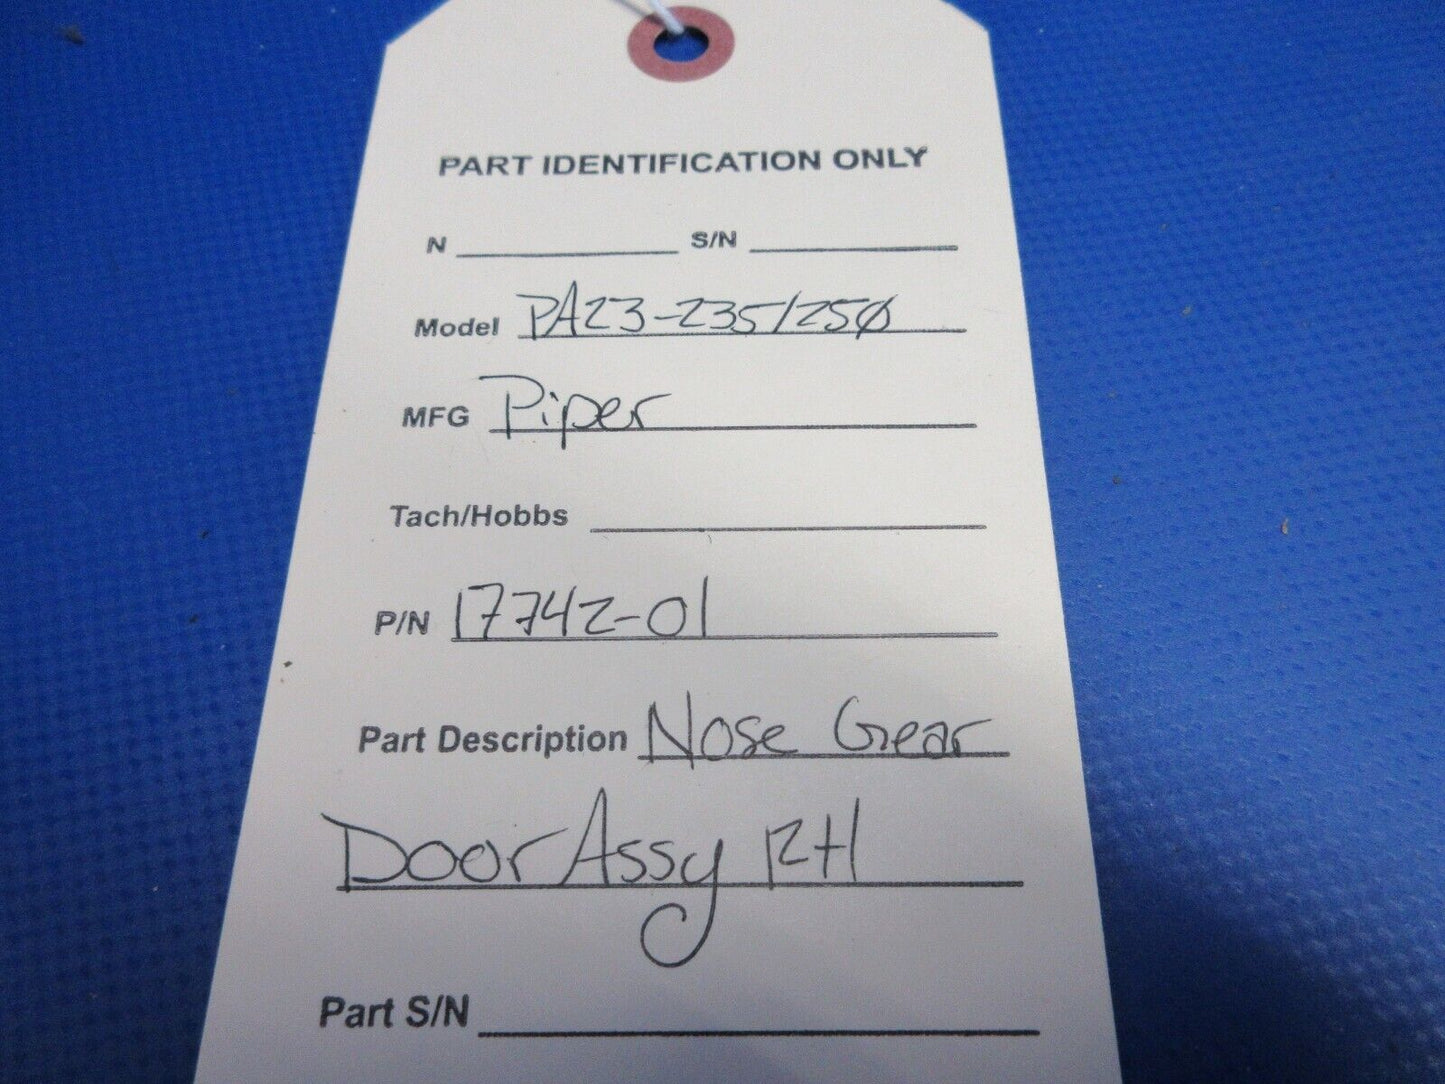 PART IDENTIFICATION ONLY
N S/N
Model PA23-235/250
MFG Piper
Tach/Hobbs
P/N 17742-01
Part Description Nose Gear
Door Assy RH
Part S/N